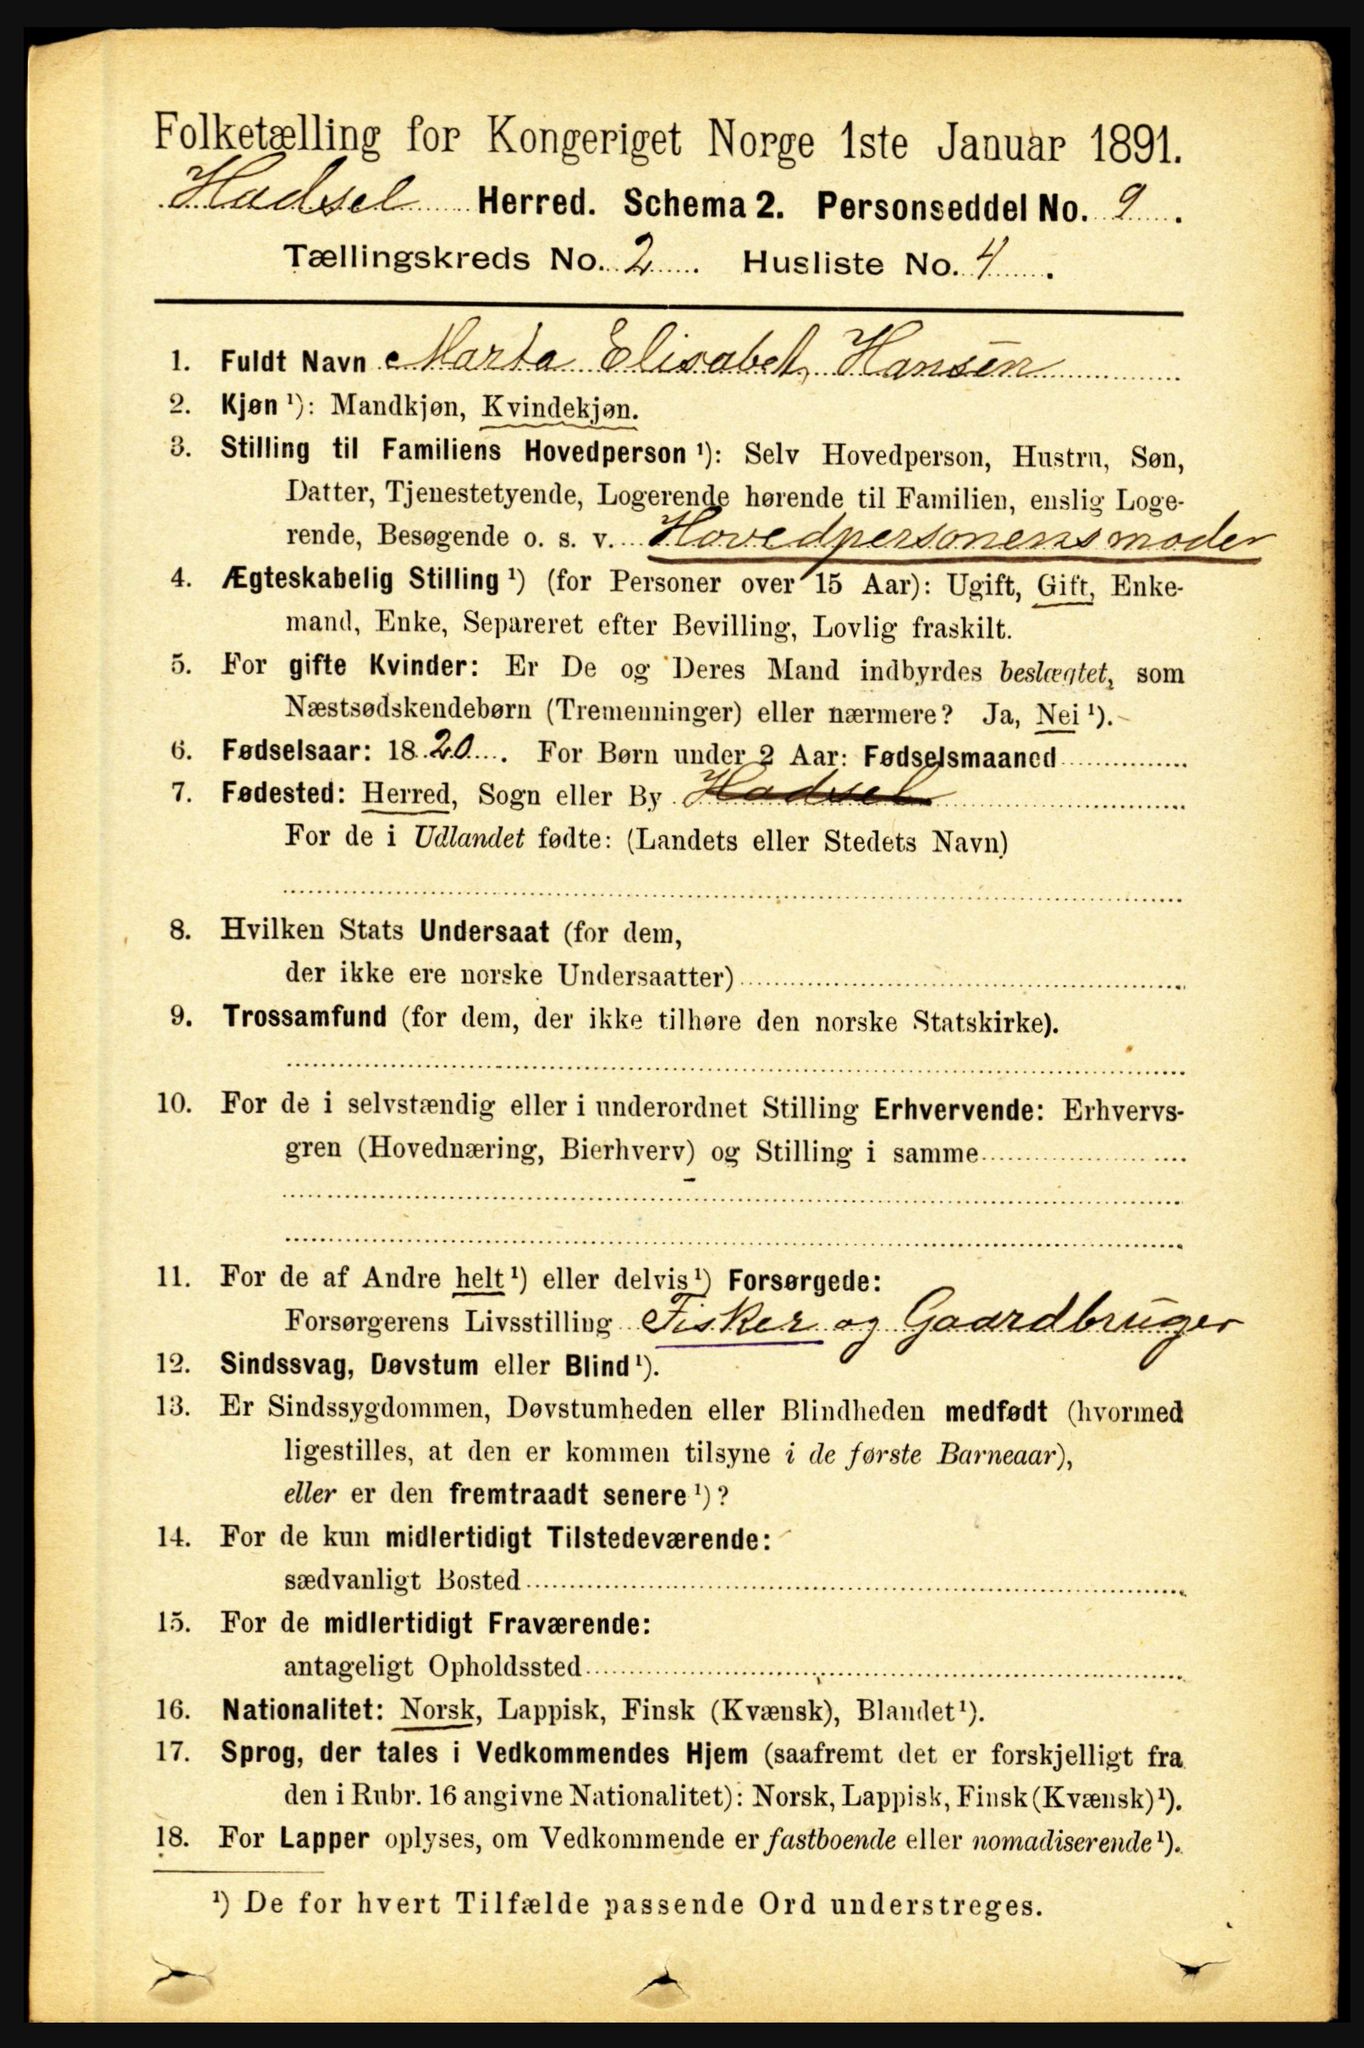 Folketælling for Kongeriget Norge 1ste Januar 1891.
Hadsel Herred. Schema 2. Personseddel No. 9.
Tællingskreds No. 2. Husliste No. 4.
1. Fuldt Navn Marta Elisabet Hansen
2. Kjøn ¹): Mandkjøn, Kvindekjøn.
3. Stilling til Familiens Hovedperson ¹): Selv Hovedperson, Hustru, Søn,
Datter, Tjenestetyende, Logerende hørende til Familien, enslig Loge-
rende, Besøgende o. s. v. Hovedpersonens moder
4. Ægteskabelig Stilling ¹) (for Personer over 15 Aar): Ugift, Gift, Enke-
mand, Enke, Separeret efter Bevilling, Lovlig fraskilt.
5. For gifte Kvinder: Er De og Deres Mand indbyrdes beslægtet, som
Næstsødskendebørn (Tremenninger) eller nærmere? Ja, Nei ¹).
6. Fødselsaar: 1820. For Børn under 2 Aar: Fødselsmaaned
7. Fødested: Herred, Sogn eller By Hadsel
For de i Udlandet fødte: (Landets eller Stedets Navn)
8. Hvilken Stats Undersaat (for dem,
der ikke ere norske Undersaatter)
9. Trossamfund (for dem, der ikke tilhøre den norske Statskirke).
10. For de i selvstændig eller i underordnet Stilling Erhvervende: Erhvervs-
gren (Hovednæring, Bierhverv) og Stilling i samme
11. For de af Andre helt ¹) eller delvis ¹) Forsørgede:
Forsørgerens Livsstilling Fisker og Gaardbruger
12. Sindssvag, Døvstum eller Blind ¹).
13. Er Sindssygdommen, Døvstumheden eller Blindheden medfødt (hvormed
ligestilles, at den er kommen tilsyne i de første Barneaar),
eller er den fremtraadt senere ¹)?
14. For de kun midlertidigt Tilstedeværende:
sædvanligt Bosted
15. For de midlertidigt Fraværende:
antageligt Opholdssted
16. Nationalitet: Norsk, Lappisk, Finsk (Kvænsk), Blandet ¹).
17. Sprog, der tales i Vedkommendes Hjem (saafremt det er forskjelligt fra
den i Rubr. 16 angivne Nationalitet): Norsk, Lappisk, Finsk (Kvænsk) ¹).
18. For Lapper oplyses, om Vedkommende er fastboende eller nomadiserende ¹).
¹) De for hvert Tilfælde passende Ord understreges.